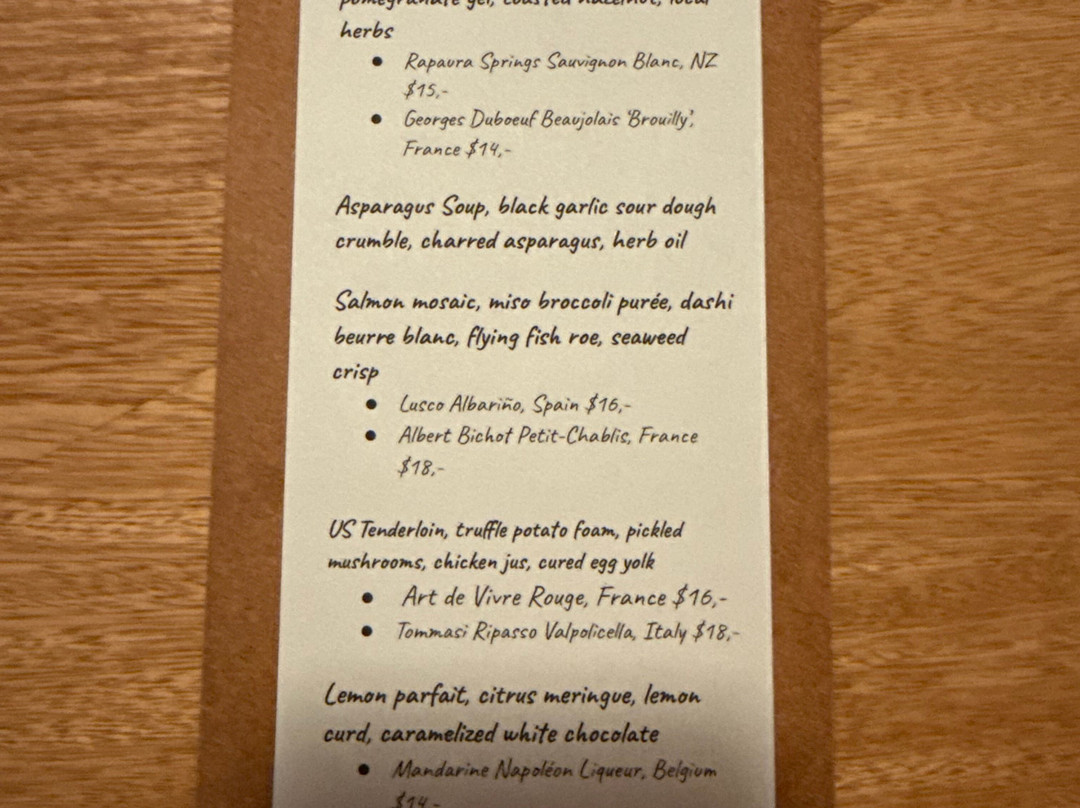 pomegranate gel, toasted hazelnut, local
herbs
● Rapaura Springs Sauvignon Blanc, NZ
$15,-
● Georges Duboeuf Beaujolais 'Brouilly',
France $14,-
Asparagus Soup, black garlic sour dough
crumble, charred asparagus, herb oil
Salmon mosaic, miso broccoli purée, dashi
beurre blanc, flying fish roe, seaweed
crisp
● Lusco Albariño, Spain $16,-
● Albert Bichot Petit-Chablis, France
$18,-
US Tenderloin, truffle potato foam, pickled
mushrooms, chicken jus, cured egg yolk
● Art de Vivre Rouge, France $16,-
● Tommasi Ripasso Valpolicella, Italy $18,-
Lemon parfait, citrus meringue, lemon
curd, caramelized white chocolate
● Mandarine Napoléon Liqueur, Belgium
$14,-